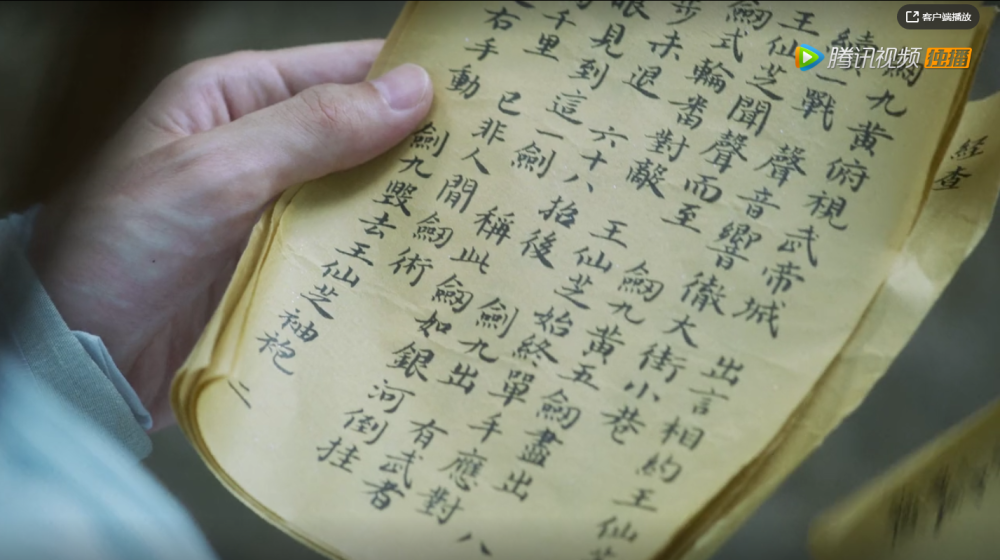 客户端播放
腾讯视频 独播
經查
劍九黃俯視武帝城 出言相約王仙芝
續一戰 聲音響徹大街小巷
王仙芝聞聲而至 劍九黃五劍盡出 八
劍式輪番對敵 王仙芝始終單手應對
步未退 六十八招後 劍九出 有武者
眼見到這一劍 稱此劍如銀河倒挂
千里 已非人間劍術
右手動 劍九毀去王仙芝袖袍 二